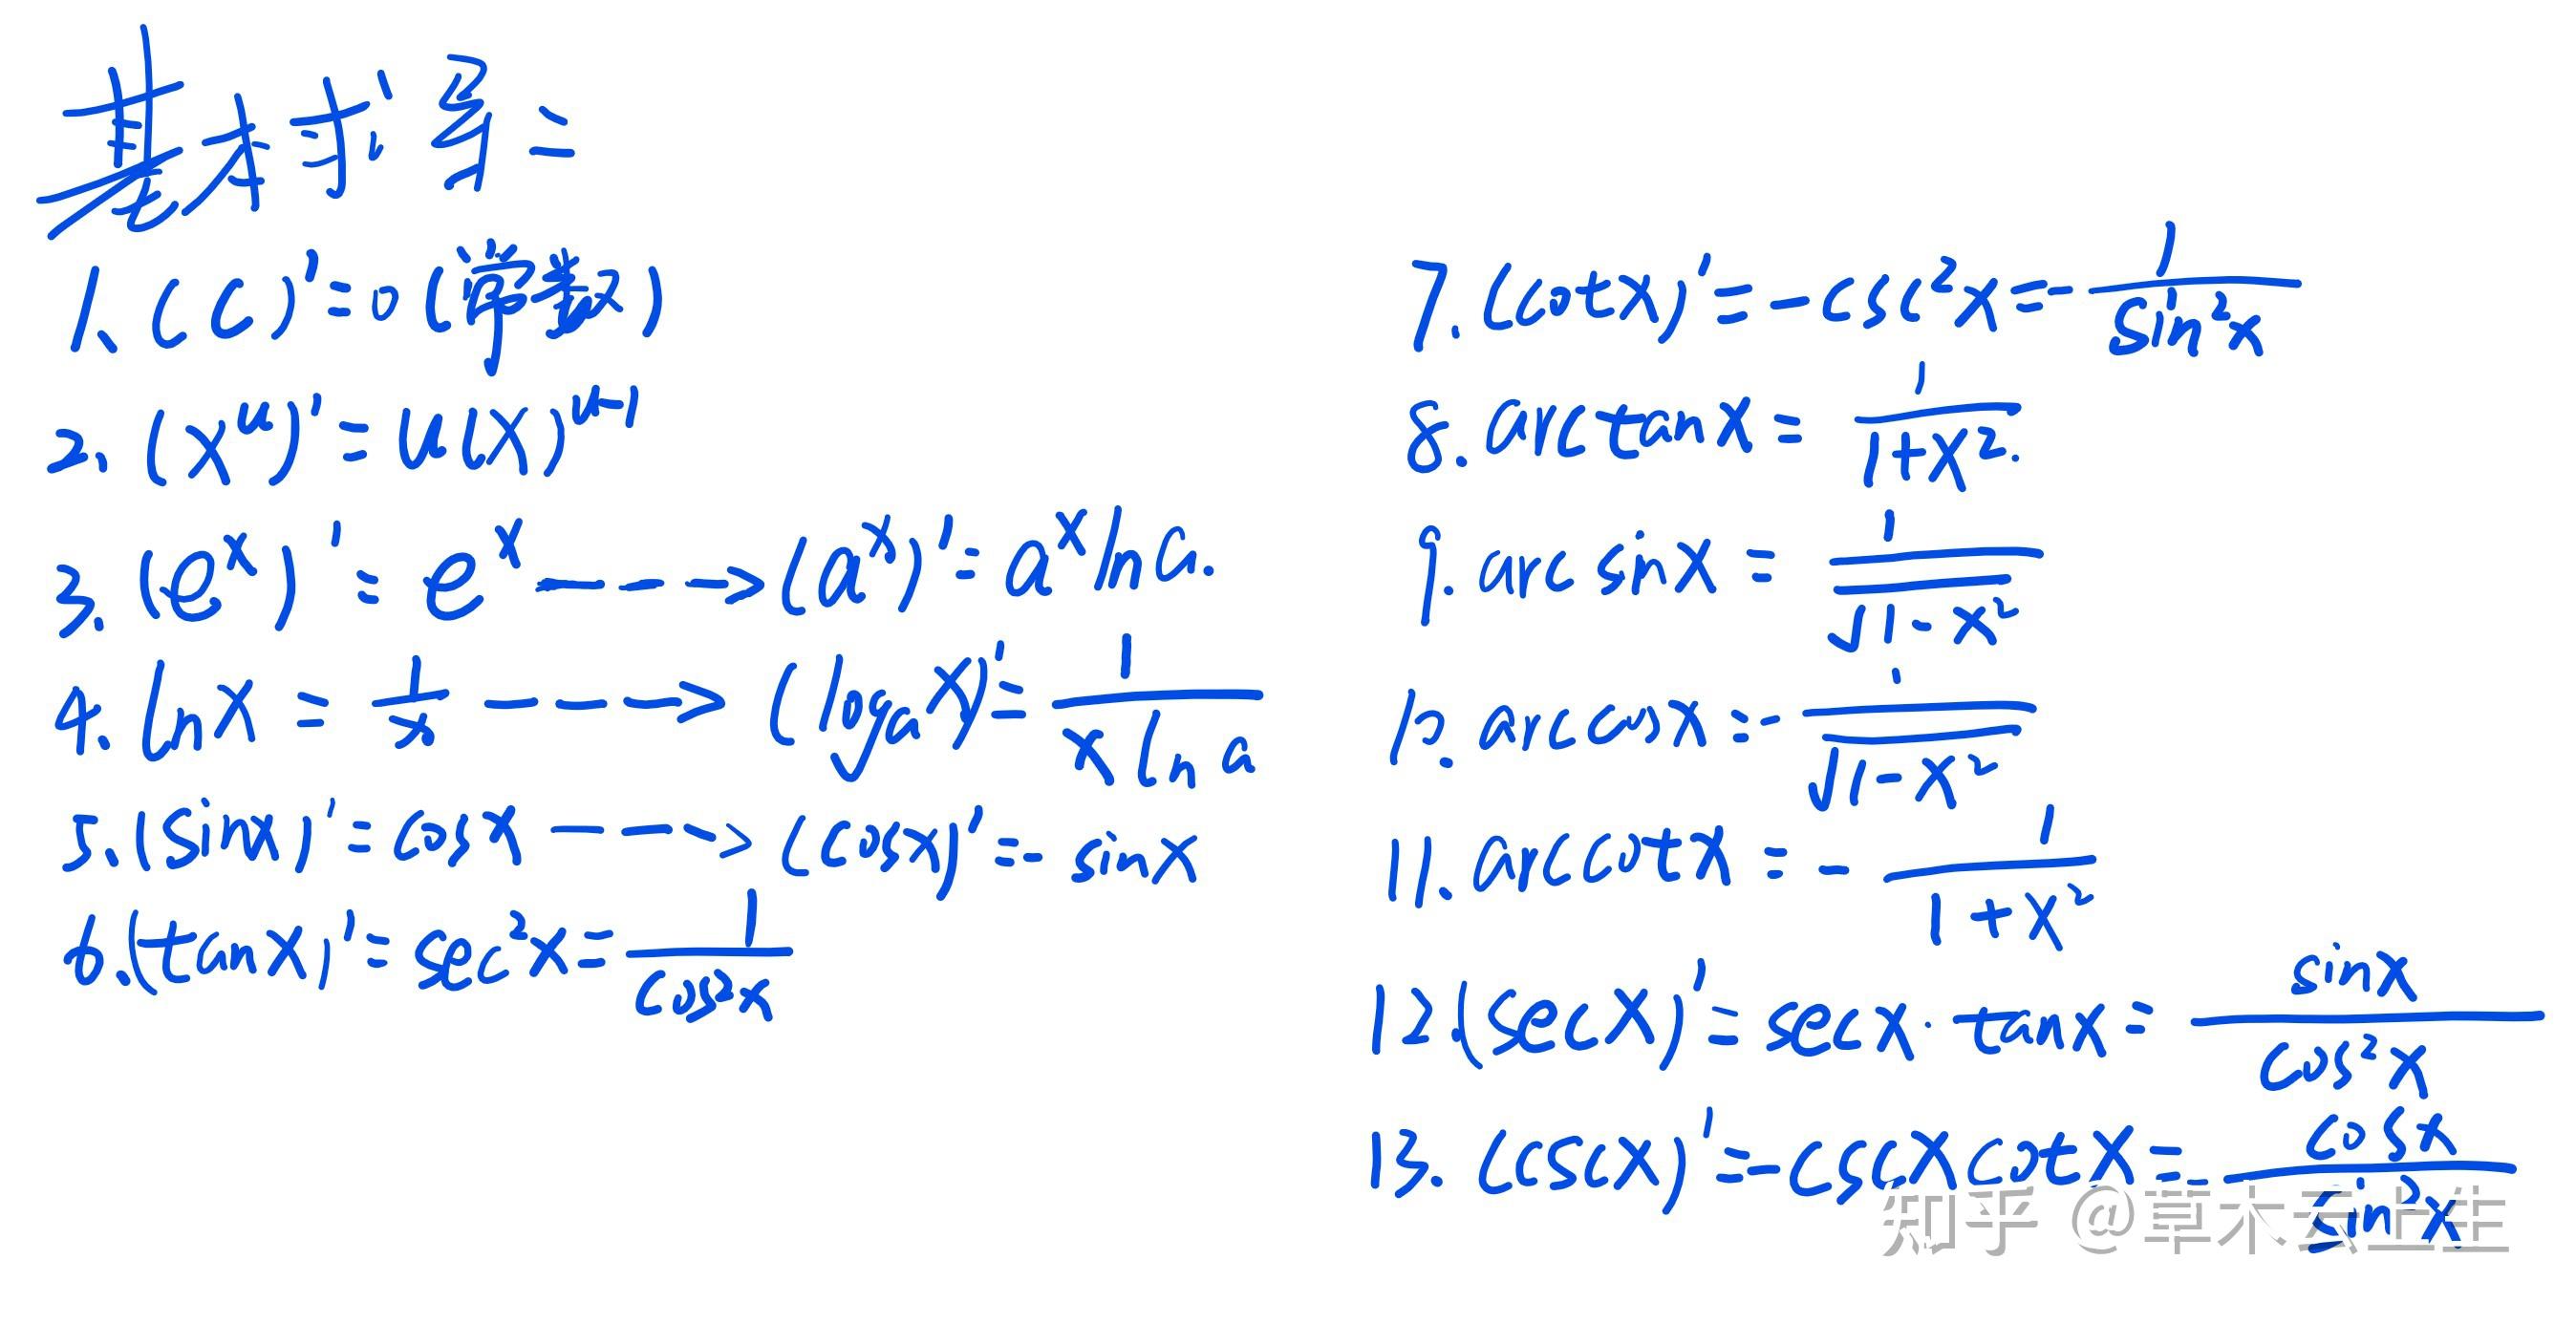 基本求导=
1、(C)'=0(常数)
2、(x^u)'=u(x)^{u-1}
3.(e^x)'=e^x---->(a^x)'=a^x ln a.
4.ln x=\frac{1}{x}---->(log_a x)'=\frac{1}{x ln a}
5.(sinx)'=cosx---->(cosx)'=-sinx
6.(tanx)'=sec^2x=\frac{1}{cos^2x}
7.(cotx)'=-csc^2x=-\frac{1}{sin^2x}
8.arctanx=\frac{1}{1+x^2}.
9.arcsinx=\frac{1}{\sqrt{1-x^2}}
10.arccosx=-\frac{1}{\sqrt{1-x^2}}
11.arccotx=-\frac{1}{1+x^2}
12.(secx)'=secx·tanx=\frac{sinx}{cos^2x}
13.(cscx)'=-cscxcotx=-\frac{cosx}{sin^2x}
知乎 @草木云上生